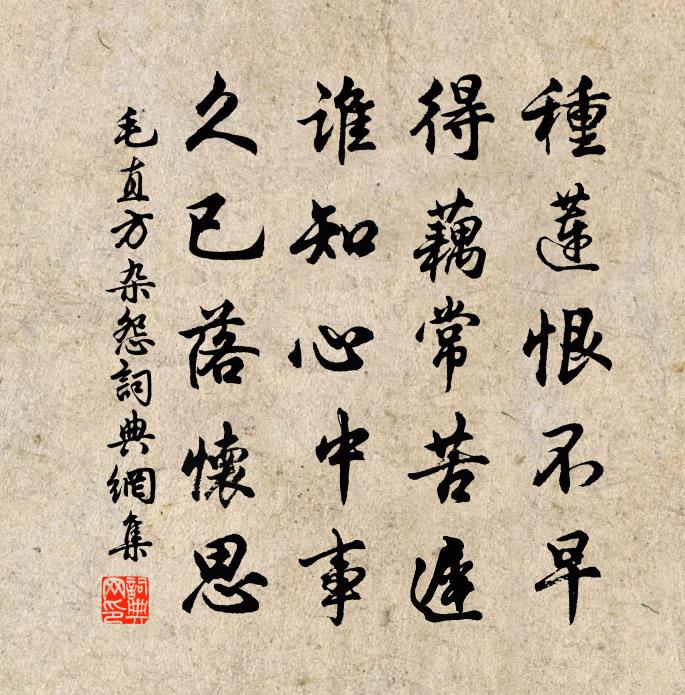 種蓮恨不早
得藕常苦遲
誰知心中事
久已落懷思
毛直方杂怨詞典網集
詞典网印